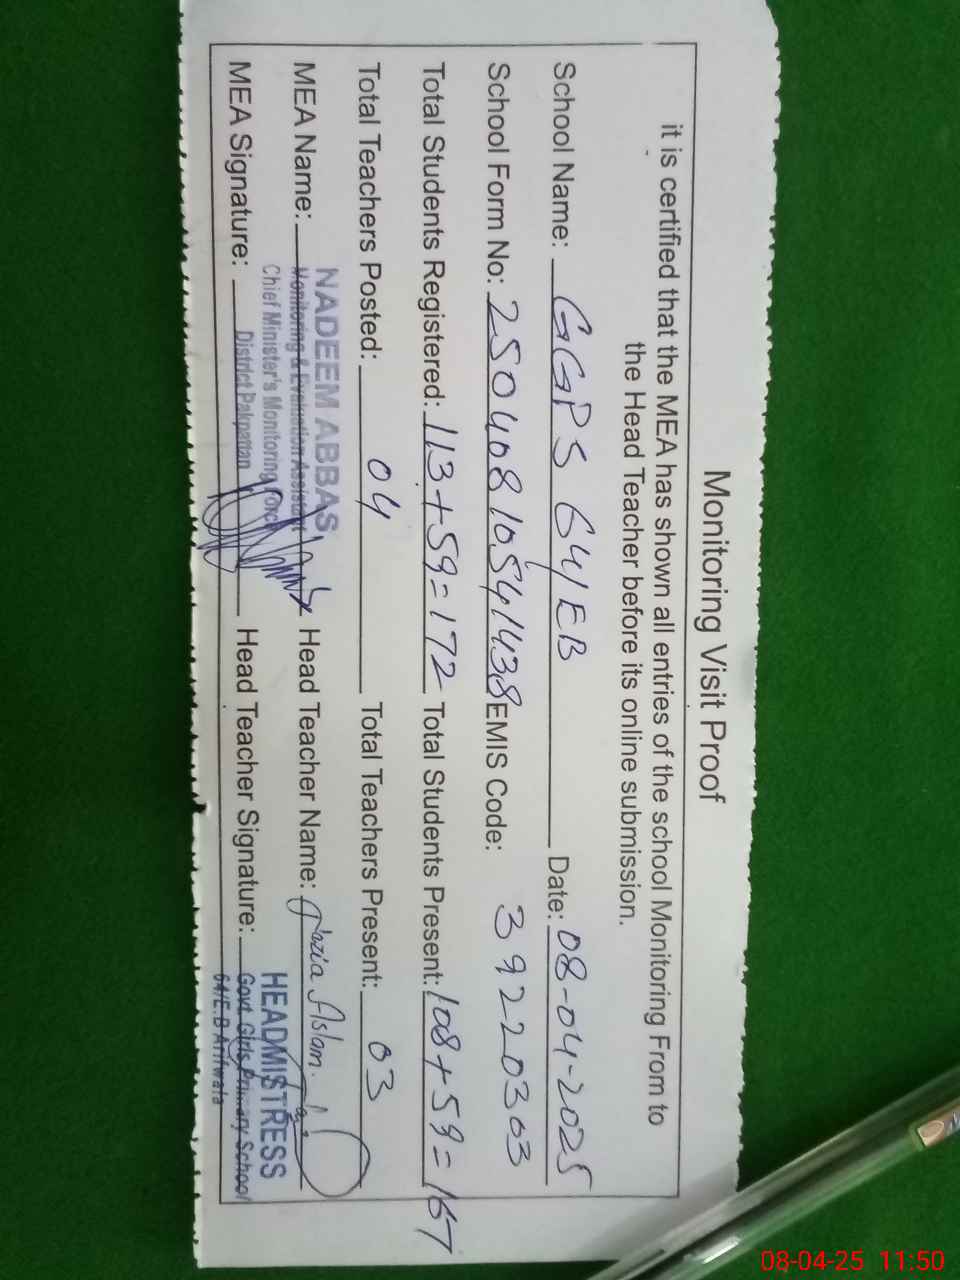 Monitoring Visit Proof
it is certified that the MEA has shown all entries of the school Monitoring From to
the Head Teacher before its online submission.
School Name: GGPS 64/EB Date: 08-04-2025
School Form No: 25040810541438 EMIS Code: 39220303
Total Students Registered: 113+59=172 Total Students Present: 108+59=167
Total Teachers Posted: 04 Total Teachers Present: 03
MEA Name: NADEEM ABBAS Head Teacher Name: Fazia Aslam.
Monitoring & Evaluation Assistant
Chief Minister's Monitoring Force
MEA Signature: District Pakpattan Head Teacher Signature: HEADMISTRESS
Govt. Girls Primary School
64/E.B Arifwala
08-04-25 11:50